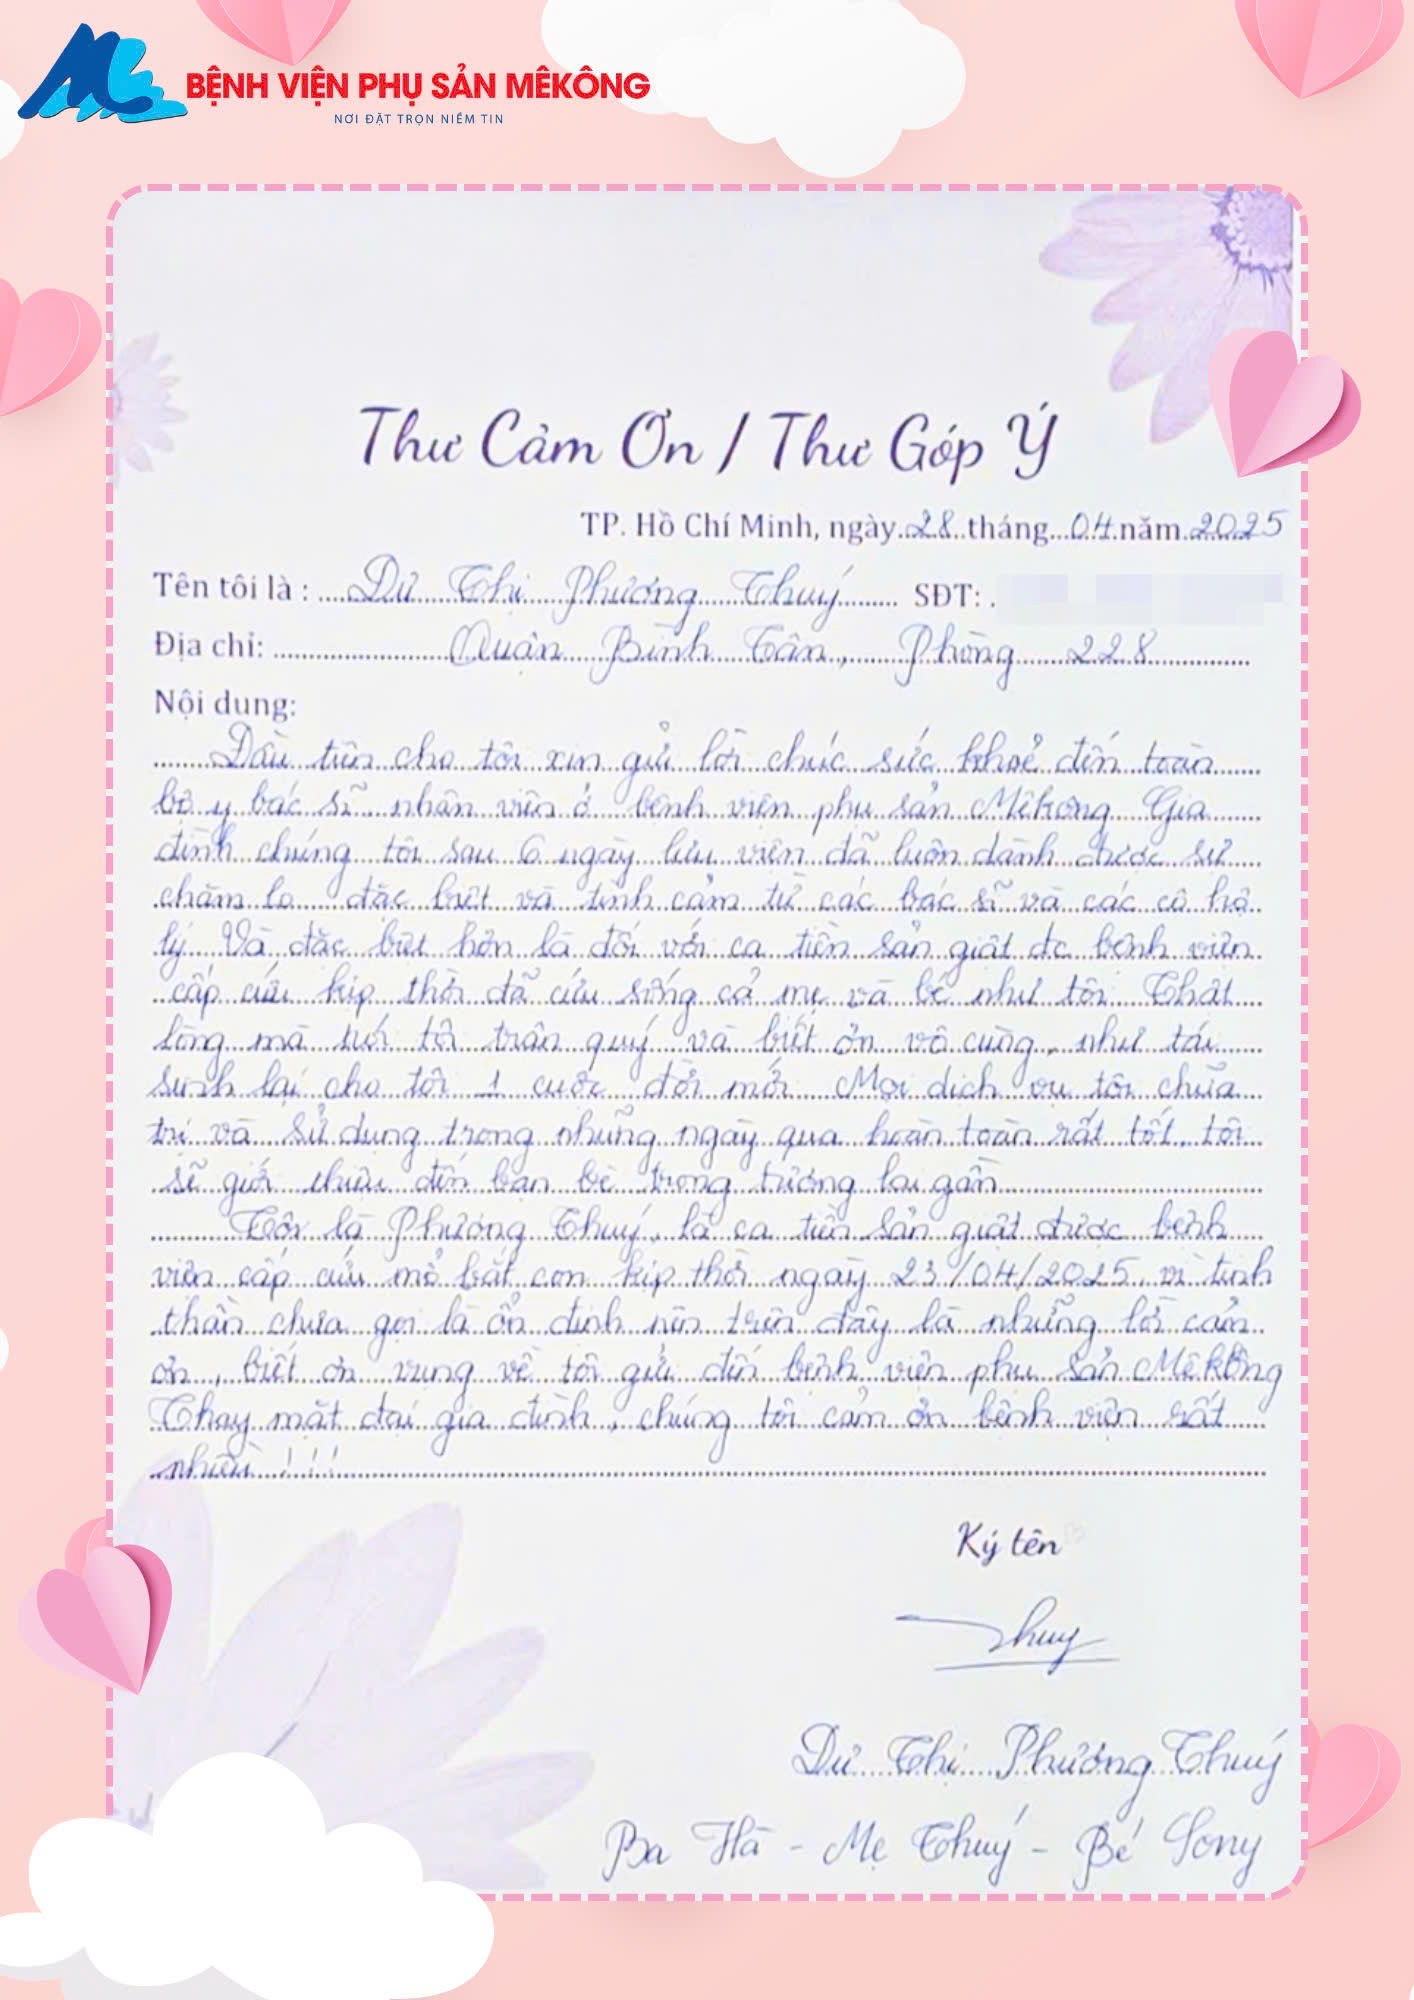 BỆNH VIỆN PHỤ SẢN MÊKÔNG
NƠI ĐẶT TRỌN NIỀM TIN
Thư Cảm Ơn / Thư Góp Ý
TP. Hồ Chí Minh, ngày 28 tháng 04 năm 2025
Tên tôi là : Dư Thị Phương Thuý SĐT:
Địa chỉ: Quận Bình Tân, Phòng 228
Nội dung:
Đầu tiên cho tôi xin gửi lời chúc sức khoẻ đến toàn
bộ y bác sĩ, nhân viên ở bệnh viện phụ sản Mêkông. Gia
đình chúng tôi sau 6 ngày lưu viện đã luôn dành được sự
chăm lo đặc biệt và tình cảm từ các bác sĩ và các cô hộ
lý. Và đặc biệt hơn là đối với ca tiền sản giật đc bệnh viện
cấp cứu kịp thời đã cứu sống cả mẹ và bé như tôi. Thật
lòng mà nói tôi trân quý và biết ơn vô cùng, như tái
sinh lại cho tôi 1 cuộc đời mới. Mọi dịch vụ tôi chữa
trị và sử dụng trong những ngày qua hoàn toàn rất tốt, tôi
sẽ giới thiệu đến bạn bè trong tương lai gần
Tôi là Phương Thuý, là ca tiền sản giật được bệnh
viện cấp cứu mổ bắt con kịp thời ngày 23/04/2025, vì tinh
thần chưa gọi là ổn định nên trên đây là những lời cảm
ơn, biết ơn vụng về tôi gửi đến bệnh viện phụ sản Mêkông
Thay mặt đại gia đình, chúng tôi cảm ơn bệnh viện rất
nhiều !!!
Ký tên
Thuy
Dư Thị Phương Thuý
Ba Hà - Mẹ Thuý - Bé Sony